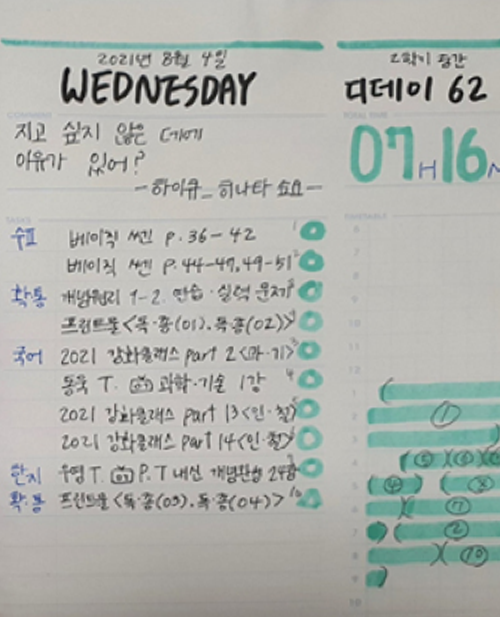 2021년 8월 4일
WEDNESDAY
2학기 중간
디데이 62
COMMENT
TOTAL TIME
지고 싶지 않은 데에
이유가 있어?
-하이큐_히나타 쇼요-
07H 16M
TASKS
TIMETABLE
수Ⅱ 베이직 쎈 p.36-42 1
베이직 쎈 p.44-47,49-51 2
확통 개념원리 1-2. 연습·실력 문제
프린트물<독·종(01).독·종(02)>
국어 2021 강화클래스 part 2<과·기>
동욱 T. 과학·기술 1강
2021 강화클래스 part 13<인·철>
2021 강화클래스 part 14<인·철>
한지 우영 T. P.T 내신 개념완성 24강
확·통 프린트물<독·종(03).독·종(04)> 10
6
7
8
9
10
11
12
1
2 ①
3
4 ⑤
5 ④
6 ⑦
7 ②
8 ⑩
9
10